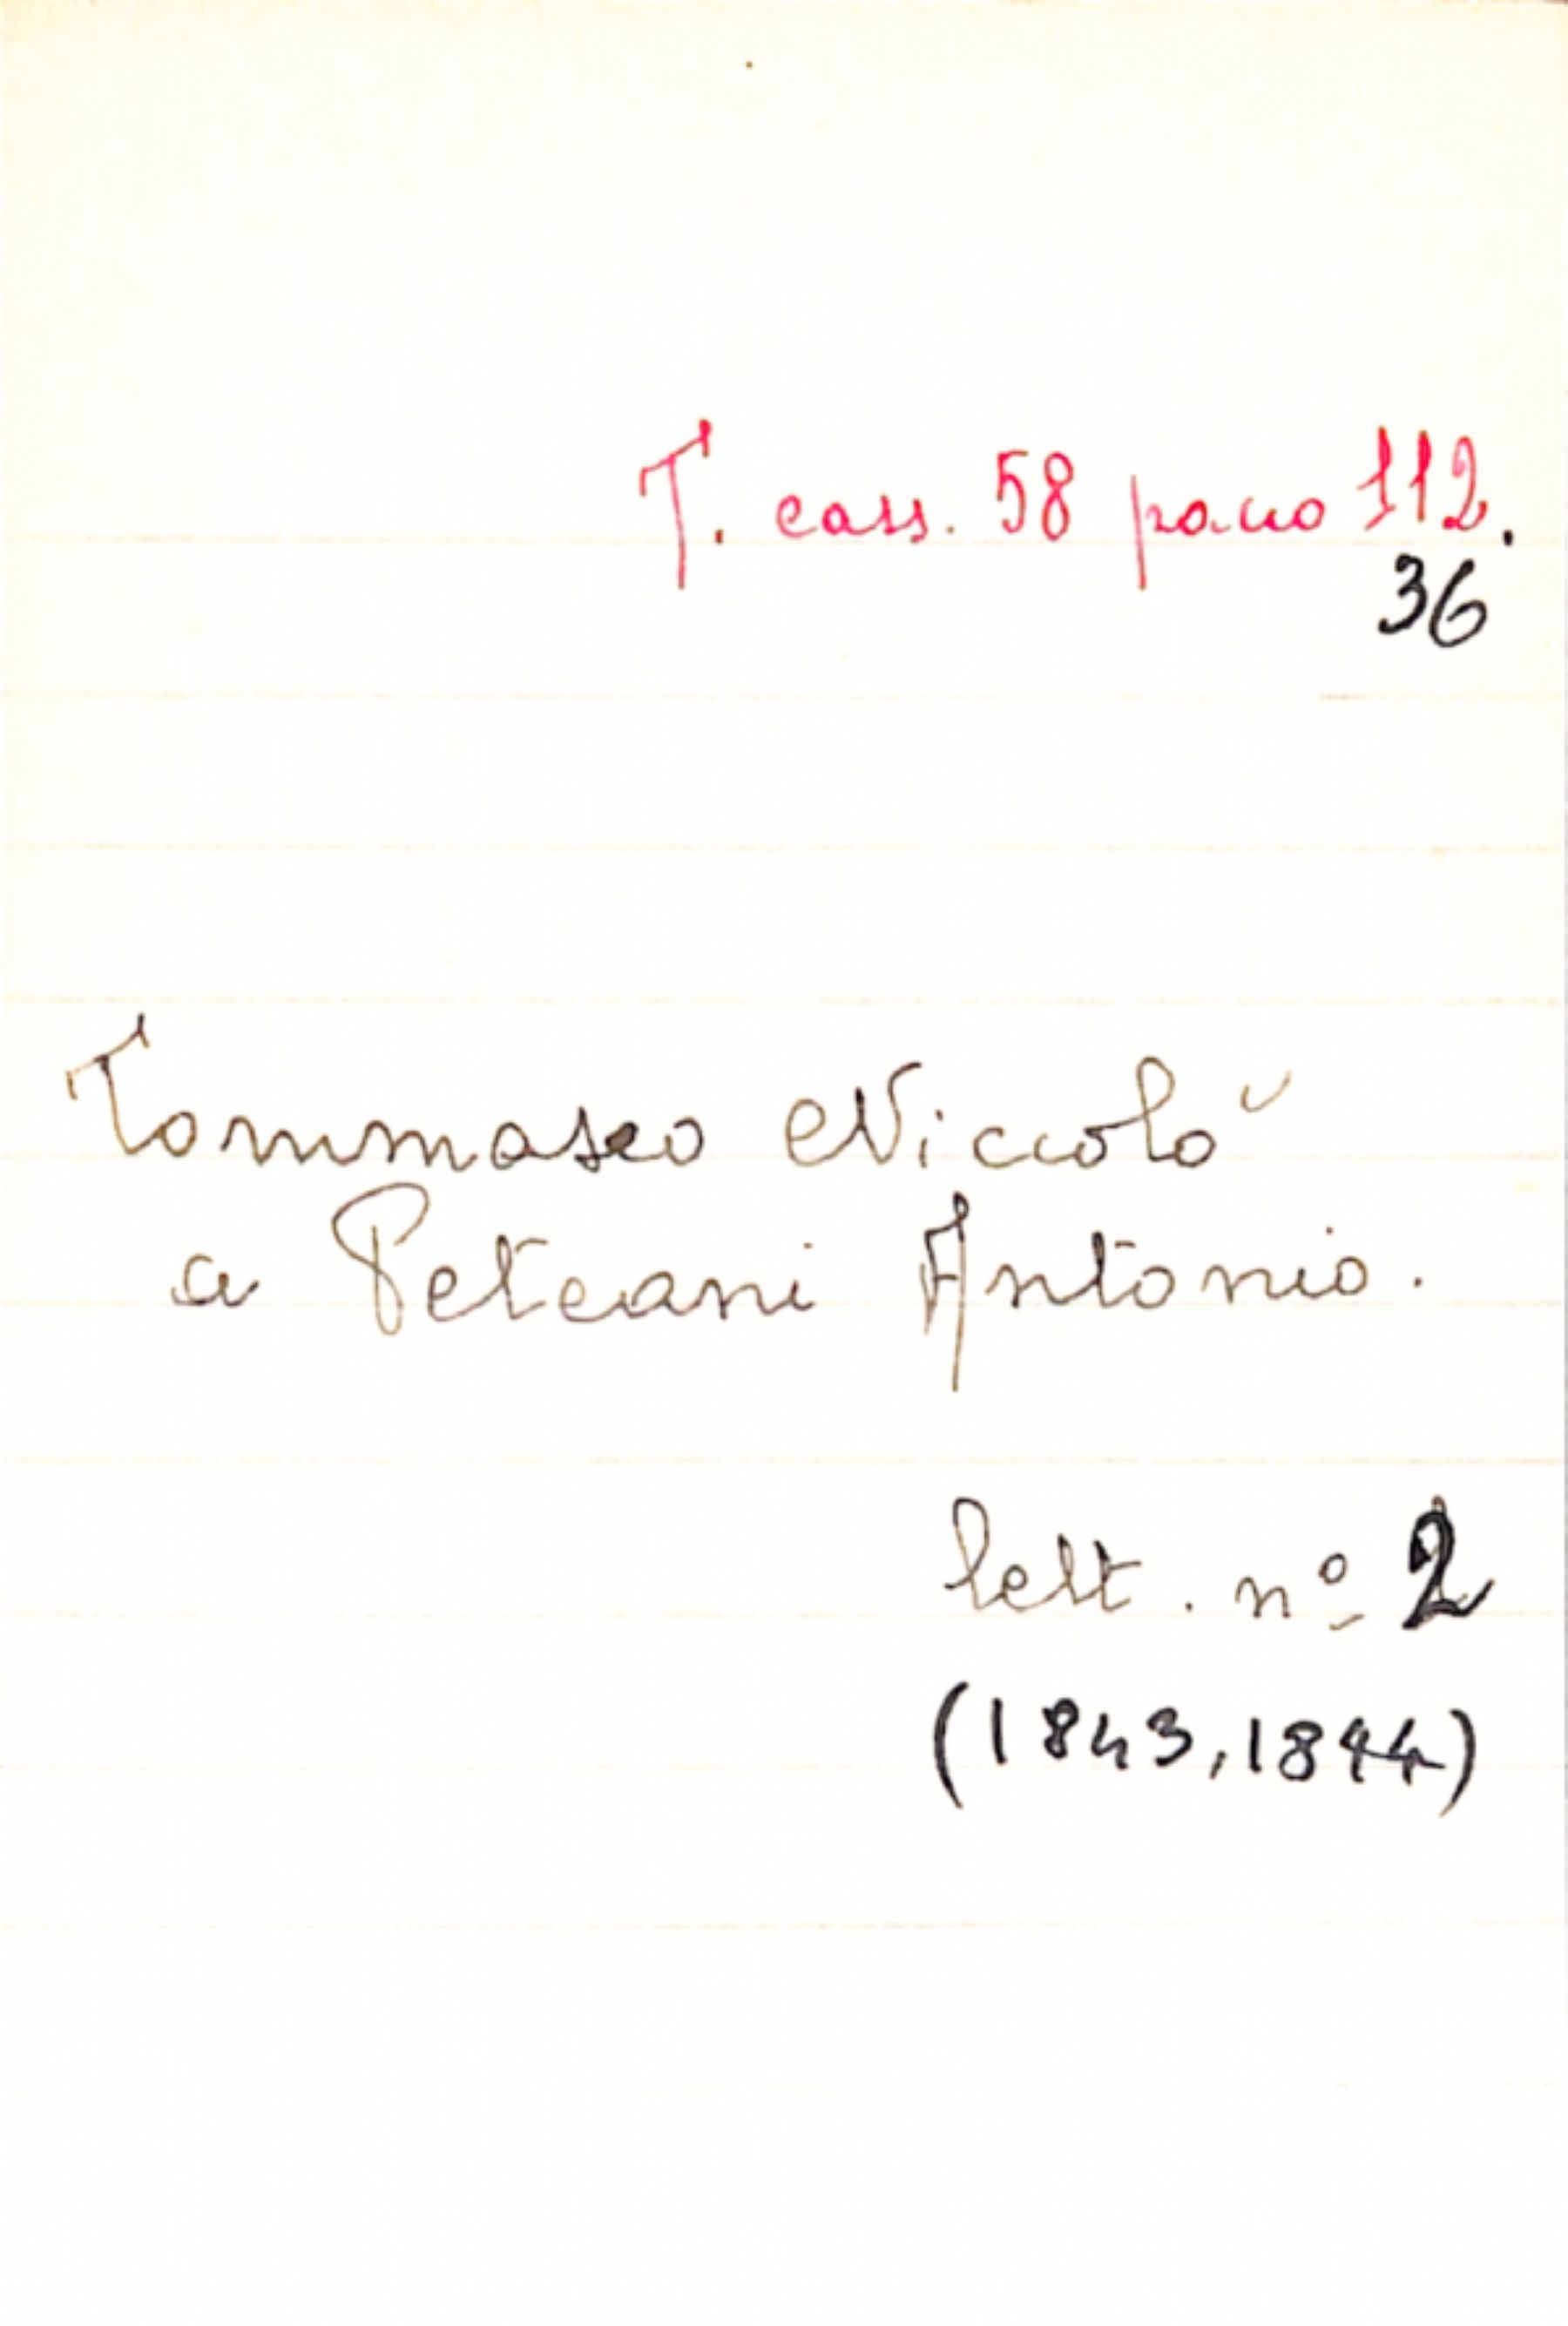 T. cass. 58 pacco 112.
36
Tommaseo Niccolò
a Peteani Antonio.
lett. nº 2
(1843, 1844)